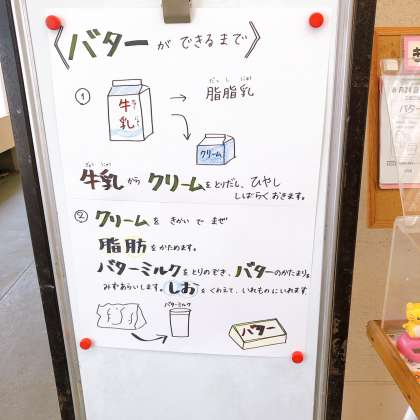 《バターができるまで》
① 牛乳 → 脂脂乳
クリーム
牛乳からクリームをとりだし、ひやし
しばらくおきます。
② クリームをきかいでまぜ
脂肪をかためます。
バターミルクをとりのぞき、バターのかたまりを
みずあらいします。しおをくわえて、いれものにいれます
バターミルク
バター